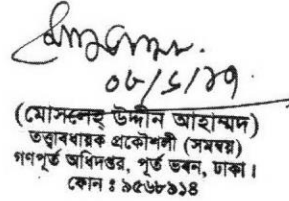 (মোসলেহ্ উদ্দীন আহাম্মদ)
তত্ত্বাবধায়ক প্রকৌশলী (সমন্বয়)
গণপূর্ত অধিদপ্তর, পূর্ত ভবন, ঢাকা।
ফোন : ৯৫৬৮৯১৪